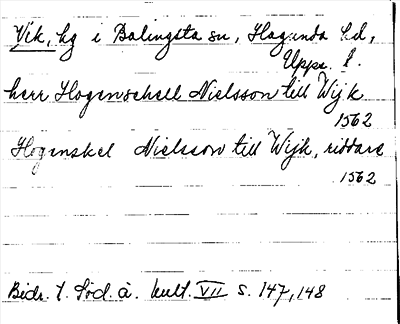 Vik, hg i Balingsta sn, Hagunda hd,
Upps. l.
herr Hogenschell Nielsson till Wijk
1562
Hogenskel Nielsson till Wijk, riddare
1562
Bidr. t. Söd. à. kult. VII s. 147, 148